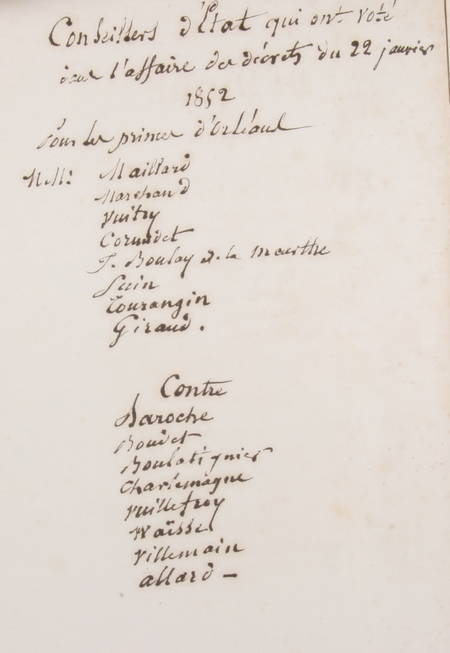 Conseillers d'Etat qui ont voté
dans l'affaire des décrets du 22 janvier
1852
Pour les princes d'Orléans
M.M. Maillard
Marchand
Vuitry
Cornudet
J. Boulay de la meurthe
Suin
Tourangin
Giraud.
Contre
Baroche
Boudet
Boulatignier
Charlemagne
Vuillefroy
Waïsse
Villemain
allard –